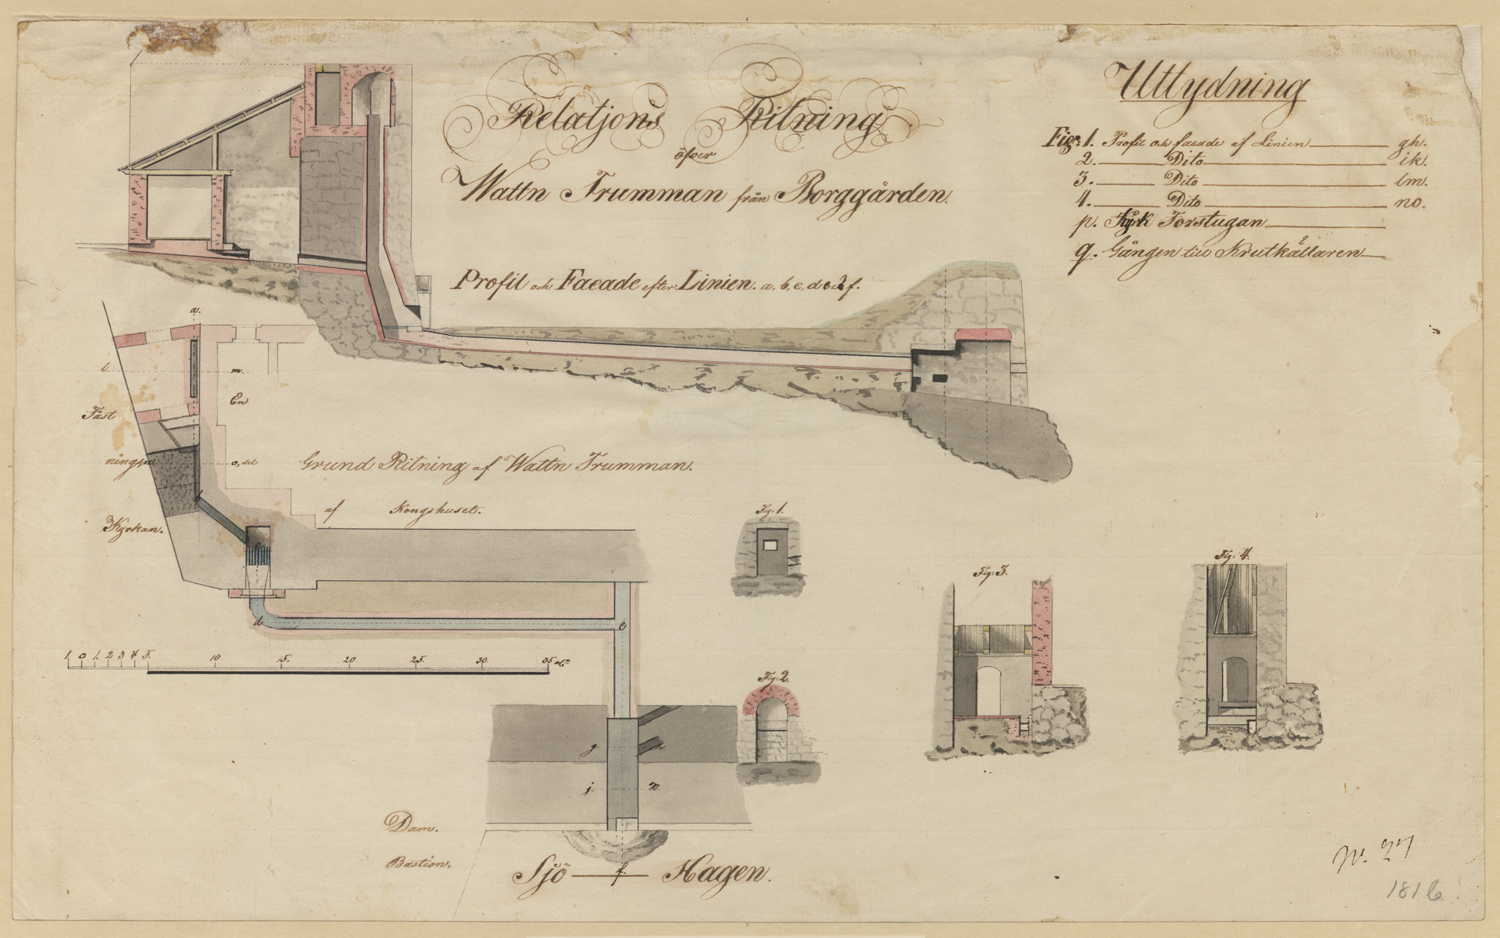 Relations Ritning
öfver
Wattn Trumman från Borggården.
Profil och Facade efter Linien. a, b, c, d e f.
Uttydning
Fig: 1. Profil och facade af Linien gh.
2. Dito ik.
3. Dito lm.
4. Dito no.
p. Torstugan
q. Gången till Krutkällaren
a.
l. m.
En
Fäst
ningsm o, del
Grund Ritning af Wattn Trumman.
af Kongshuset.
Kyrkan.
d e
1 0 1 2 3 4 5. 10 15. 20 25. 30. 35 al:r
Fig: 1.
Fig: 2.
Fig: 3.
Fig: 4.
g
i
Dam.
Bastion.
Sjö f Hagen.
Nr. 27
1816